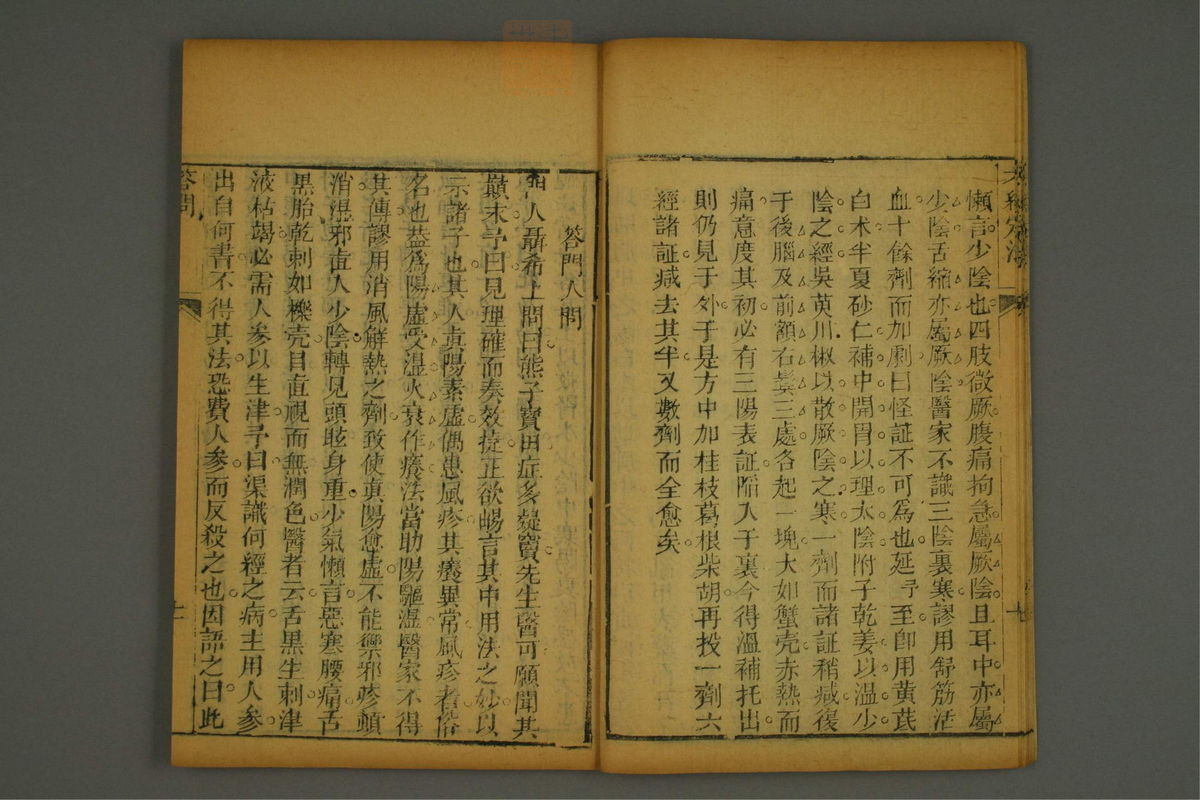 六經定法
懶言少陰也四肢微厥腹痛拘急屬厥陰且耳中亦屬
少陰舌縮亦屬厥陰醫家不識三陰裏寒謬用舒筋活
血十餘劑而加劇曰怪証不可為也延予至卽用黃芪
白朮半夏砂仁補中開胃以理太陰附子乾姜以温少
陰之經吳萸川椒以散厥陰之寒一劑而諸証稍减復
于後腦及前額右鬓三處各起一塊大如蟹壳赤熱而
痛意度其初必有三陽表証陷入于裏今得溫補托出
則仍見于外于是方中加桂枝葛根柴胡再投一劑六
經諸証减去其半又數劑而全愈矣
答門人問
門人聶希上問曰熊子寶田症多疑竇先生醫可願聞其
巔末予曰見理確而奏效捷正欲暢言其中用法之妙以
示諸子也其人真陽素虛偶患風疹其癢異常風疹者俗
名也葢爲陽虛受湿火衰作癢法當助陽驅湿醫家不得
其傳謬用消風解熱之劑致使真陽愈虛不能禦邪疹頓
消湿邪直入少陰轉見頭眩身重少氣懶言惡寒腰痛舌
黑胎乾刺如櫟壳目直視而無潤色醫者云舌黑生刺津
液枯竭必需人參以生津予曰渠識何經之病主用人參
出自何書不得其法恐費人參而反殺之也因語之曰此
答問